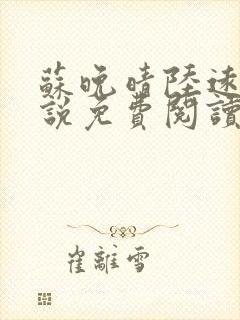 蘇晚晴陸
說免費閱讀
崔離雪